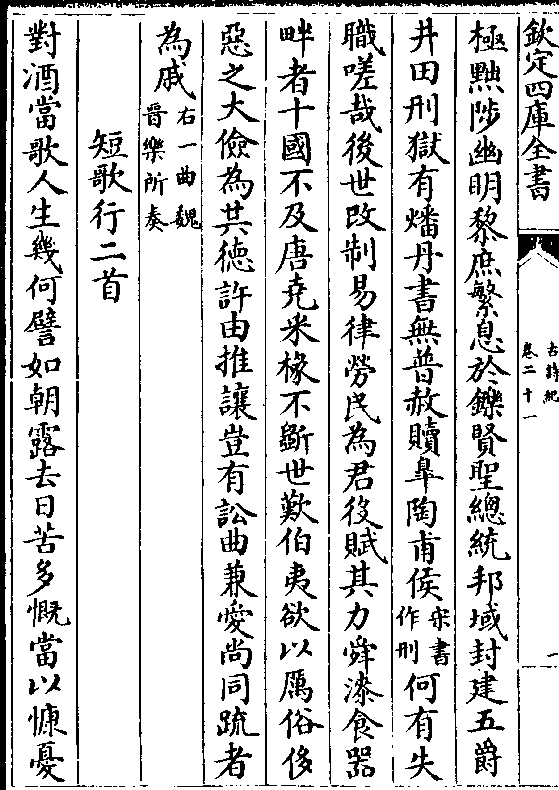 欽定四庫全書
古詩紀
卷二十一
一
極黜陟幽明黎庶繁息於鑠賢聖總統邦域封建五爵
井田刑獄有燔丹書無普赦贖臯陶甫侯宋書作刑何有失
職嗟哉後世改制易律勞民為君役賦其力舜漆食器
畔者十國不及唐堯采椽不斲世歎伯夷欲以厲俗侈
惡之大儉為共德許由推讓豈有訟曲兼愛尚同疏者
為戚右一曲魏晉樂所奏
短歌行二首
對酒當歌人生幾何譬如朝露去日苦多慨當以慷憂